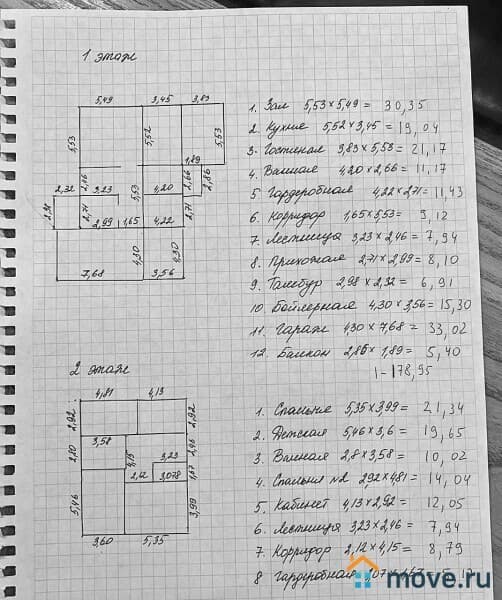 1 этаж
5,49 3,45 3,83
5,53 5,52 5,53
1,89
2,32 3,23 2,46 5,53 4,20 2,66 2,86
2,31 2,71 2,99 1,65 4,22 2,71
7,68 4,30 3,56 4,30
1. Зал 5,53 × 5,49 = 30,35
2 Кухня 5,52 × 3,45 = 19,04
3. Гостиная 3,83 × 5,53 = 21,17
4. Ванная 4,20 × 2,66 = 11,17
5 Гардеробная 4,22 × 2,71 = 11,43
6. Корридор 1,65 × 5,53 = 9,12
7. Лестница 3,23 × 2,46 = 7,94
8. Прихожая 2,71 × 2,99 = 8,10
9. Тамбур 2,98 × 2,32 = 6,91
10. Бойлерная 4,30 × 3,56 = 15,30
11. Гараж 4,30 × 7,68 = 33,02
12. Балкон 2,86 × 1,89 = 5,40
1 - 178,95
2 этаж
4,81 4,13
2,92 2,92
2,80 3,58 4,15 3,23 2,46
2,12 3,078 1,67
5,46 3,99
3,60 5,35
1. Спальня 5,35 × 3,99 = 21,34
2. Детская 5,46 × 3,6 = 19,65
3. Ванная 2,8 × 3,58 = 10,02
4. Спальня №2 2,92 × 4,81 = 14,04
5. Кабинет 4,13 × 2,92 = 12,05
6. Лестница 3,23 × 2,46 = 7,94
7. Корридор 2,12 × 4,15 = 8,79
8 Гардеробная
move.ru